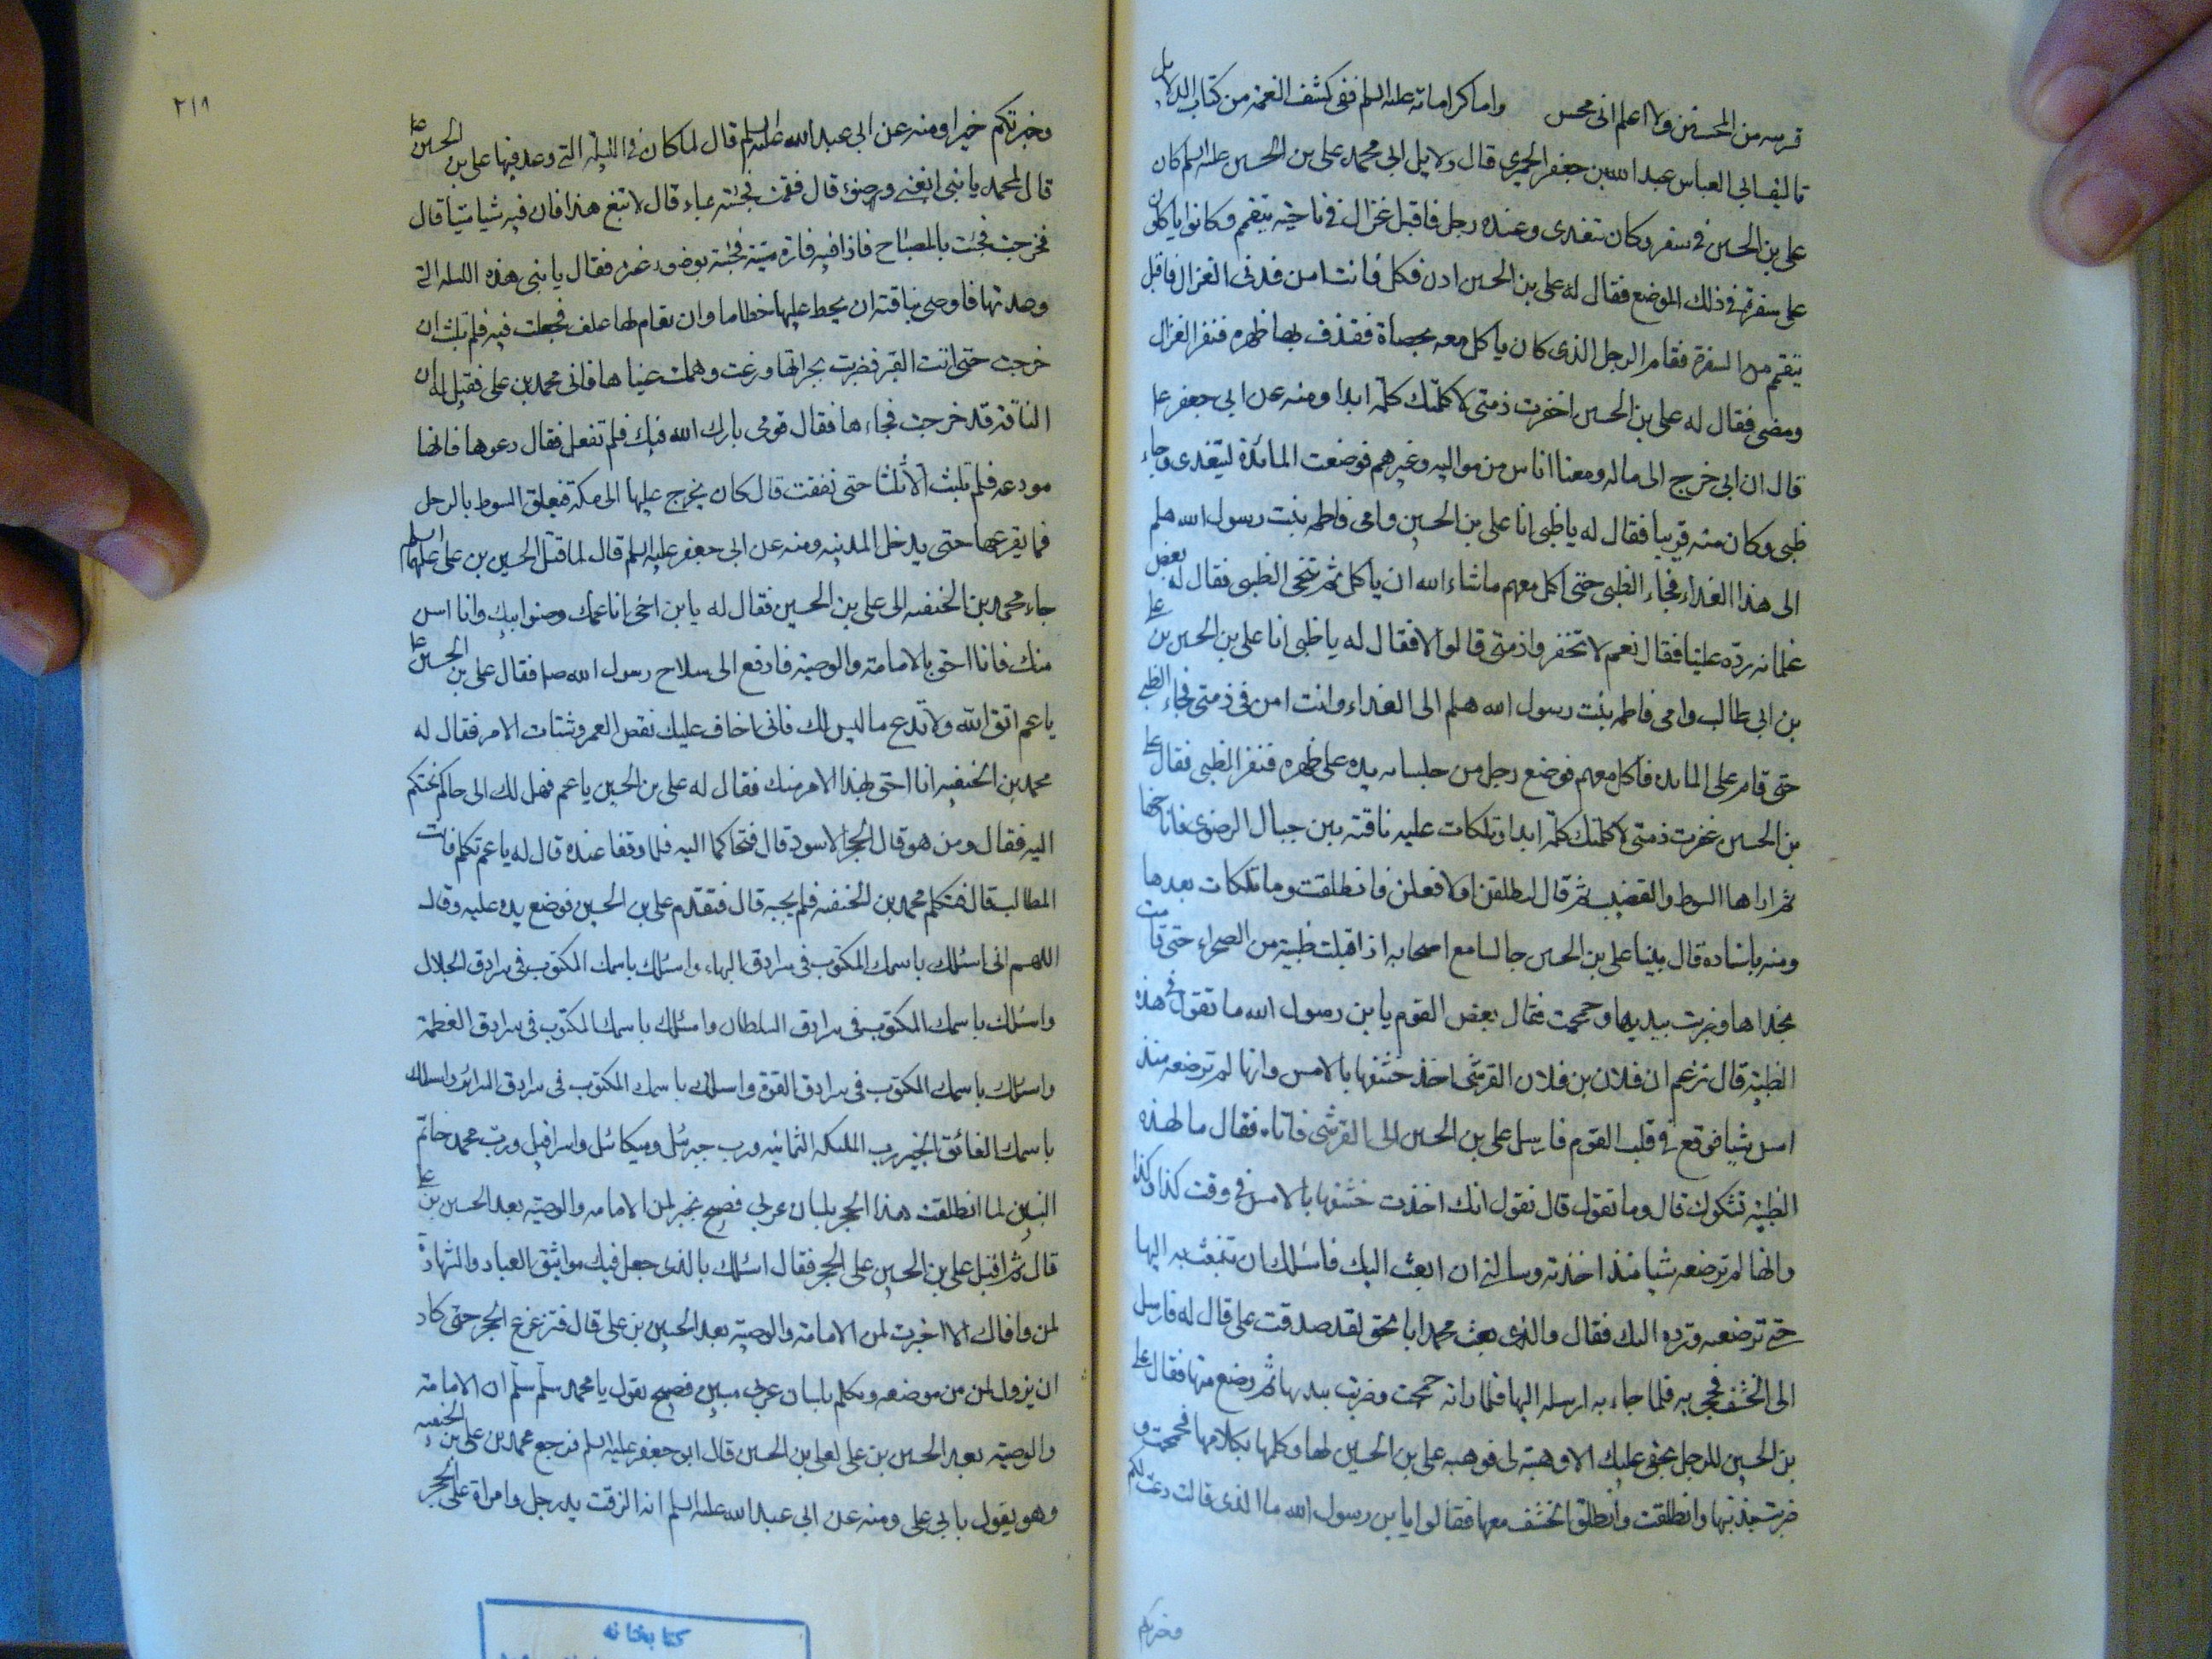 قربه من المحسنين ولا اعلم انى محسن واما كراماته عليه السلم ففى كشف الغمة من كتاب الدلايل
تاليف ابى العباس عبد الله بن جعفر الحميرى قال دلايل ابى محمد على بن الحسين عليه السلم كان
على بن الحسين فى سفر وكان يتغدى وعنده رجل فاقبل غزال فى ناحية يتقمم وكانوا ياكلون
على سفرة فى ذلك الموضع فقال له على بن الحسين ادن فكل فانت امن فدنى الغزال فاقبل
يتقمم من السفرة فقام الرجل الذى كان ياكل معه بحصاة فقذف بها ظهره فنفر الغزال
ومضى فقال له على بن الحسين اخفرت ذمتى لا كلمتك كلمة ابدا ومنه عن ابى جعفر ع
قال ان ابى خرج الى ماله ومعنا اناس من مواليه وغيرهم فوضعت المائدة ليتغدى وجاء
ظبى وكان منه قريبا فقال له يا ظبى انا على بن الحسين وامى فاطمه بنت رسول الله هلم
الى هذا الغداء فجاء الظبى حتى اكل معهم ماشاء الله ان ياكل ثم تنحى الظبى فقال له بعض
غلمانه رده علينا فقال نعم لا تخفروا ذمتى قالوا لا فقال له يا ظبى انا على بن الحسين بن على
بن ابى طالب وامى فاطمه بنت رسول الله هلم الى الغداء وانت امن فى ذمتى فجاء الظبى
حتى قام على المايده فاكل معهم فوضع رجل من جلسايه يده على ظهره فنفر الظبى فقال على
بن الحسين خفرت ذمتى لا كلمتك كلمة ابدا وتلكات عليه ناقته بين جبال الرضوى فاناخها
ثم اراها السوط والقضيب ثم قال لتطلقن او لافعلن فانطلقت وما تلكات بعدها
ومنه باسناده قال بينا على بن الحسين جالسا مع اصحابه اذ اقبلت ظبية من الصحراء حتى قامت
بحذاها وضربت بيديها وحمحمت فقال بعض القوم يا بن رسول الله ما تقول فى هذه
الظبية قال تزعم ان فلان بن فلان القرشى اخذ خشفها بالامس وانها لم ترضعه منذ
امس شيا فوقع فى قلب القوم فارسل على بن الحسين الى القرشى فاتاه فقال ما لهذه
الظبية تشكوك قال وما تقول قال تقول انك اخذت خشفها بالامس فى وقت كذا وكذا
وانها لم ترضعه شيا منذ اخذته وسالنى ان ابعث اليك فاسئلك ان تبعث به اليها
حتى ترضعه وترده اليك فقال والذى بعث محمدا بالحق لقد صدقت على قال له فارسل
الى الخشف فجئ به فلما جاء به ارسله اليها فلما راته حمحمت وضربت بيديها ثم رضع منها فقال على
بن الحسين للرجل بحقى عليك الا وهبته لى فوهبه على بن الحسين لها وكلمها بكلامها فحمحمت و
ضربت بذنبها وانطلقت وانطلق الخشف معها فقالوا يا بن رسول الله ما الذى قالت دعت لكم
وخبرتكم
٢١٨
وخبرتكم خيرا ومنه عن ابى عبد الله عليه السلم قال لما كان فى الليلة التى وعد فيها على بن الحسين ع
قال لمحمد يا بنى ابغنى وضوء قال فقمت فجئته بماء قال لا تبغ هذا فان فيه شيا ميتا قال
فخرجت فجئت بالمصباح فاذا فيه فارة ميتة فجئته بوضوء غيره فقال يا بنى هذه الليله التى
وعدتها فاوصى بناقته ان يحط عليها خطاما وان يقام لها علف فجعلت فيه فلم تلبث ان
خرجت حتى اتت القبر فضربت بجرانها ورغت وهملت عيناها فاتى محمد بن على فقيل له ان
الناقة قد خرجت فجاءها فقال قومى بارك الله فيك فلم تفعل فقال دعوها فانها
مودعه فلم تلبث الا ثلثا حتى نفقت قال كان يخرج عليها الى مكة فيعلق السوط بالرحل
فما يقرعها حتى يدخل المدينه ومنه عن ابى جعفر عليه السلم قال لما قتل الحسين بن على عليهما السلم
جاء محمد بن الحنفيه الى على بن الحسين فقال له يا بن اخى انا عمك وصنوا ابيك وانا اسن
منك فانا احق بالامامة والوصية فادفع الى سلاح رسول الله ص فقال على بن الحسين ع
يا عم اتق الله ولا تدع ما ليس لك فانى اخاف عليك نقص العمر وشتات الامر فقال له
محمد بن الحنفيه انا احق بهذا الامر منك فقال له على بن الحسين يا عم فهل لك الى حاكم نحتكم
اليه فقال ومن هو قال الحجر الاسود قال فتحاكما اليه فلما وقفا عنده قال له يا عم تكلم فانت
المطالب قال فتكلم محمد بن الحنفيه فلم يجبه قال فتقدم على بن الحسين فوضع يده عليه وقال
اللهم انى اسئلك باسمك المكتوب فى سرادق البهاء واسئلك باسمك المكتوب فى سرادق الجلال
واسئلك باسمك المكتوب فى سرادق السلطان واسئلك باسمك المكتوب فى سرادق العظمة
واسئلك باسمك المكتوب فى سرادق القوة واسئلك باسمك المكتوب فى سرادق السرائر واسئلك
باسمك الفائق الخبير رب الملئكه الثمانيه ورب جبرئيل وميكائيل واسرافيل ورب محمد خاتم
النبيين لما انطلقت هذا الحجر بلسان عربى فصيح يخبر لمن الامامه والوصيه بعد الحسين بن على
قال ثم اقبل على بن الحسين على الحجر فقال اسئلك بالذى جعل فيك مواثيق العباد والشهادة
لمن وافاك الا اخبرت لمن الامامة والوصيه بعد الحسين بن على قال فتزعزع الحجر حتى كاد
ان يزول من موضعه وتكلم بلسان عربى مبين فصيح يقول يا محمد سلم سلم ان الامامة
والوصيه بعد الحسين بن على لعلى بن الحسين قال ابو جعفر عليه السلم فرجع محمد بن على بن الحنفيه
وهو يقول بابى على ومنه عن ابى عبد الله عليه السلم انه الزقت يد رجل وامراة على الحجر
كتابخانه